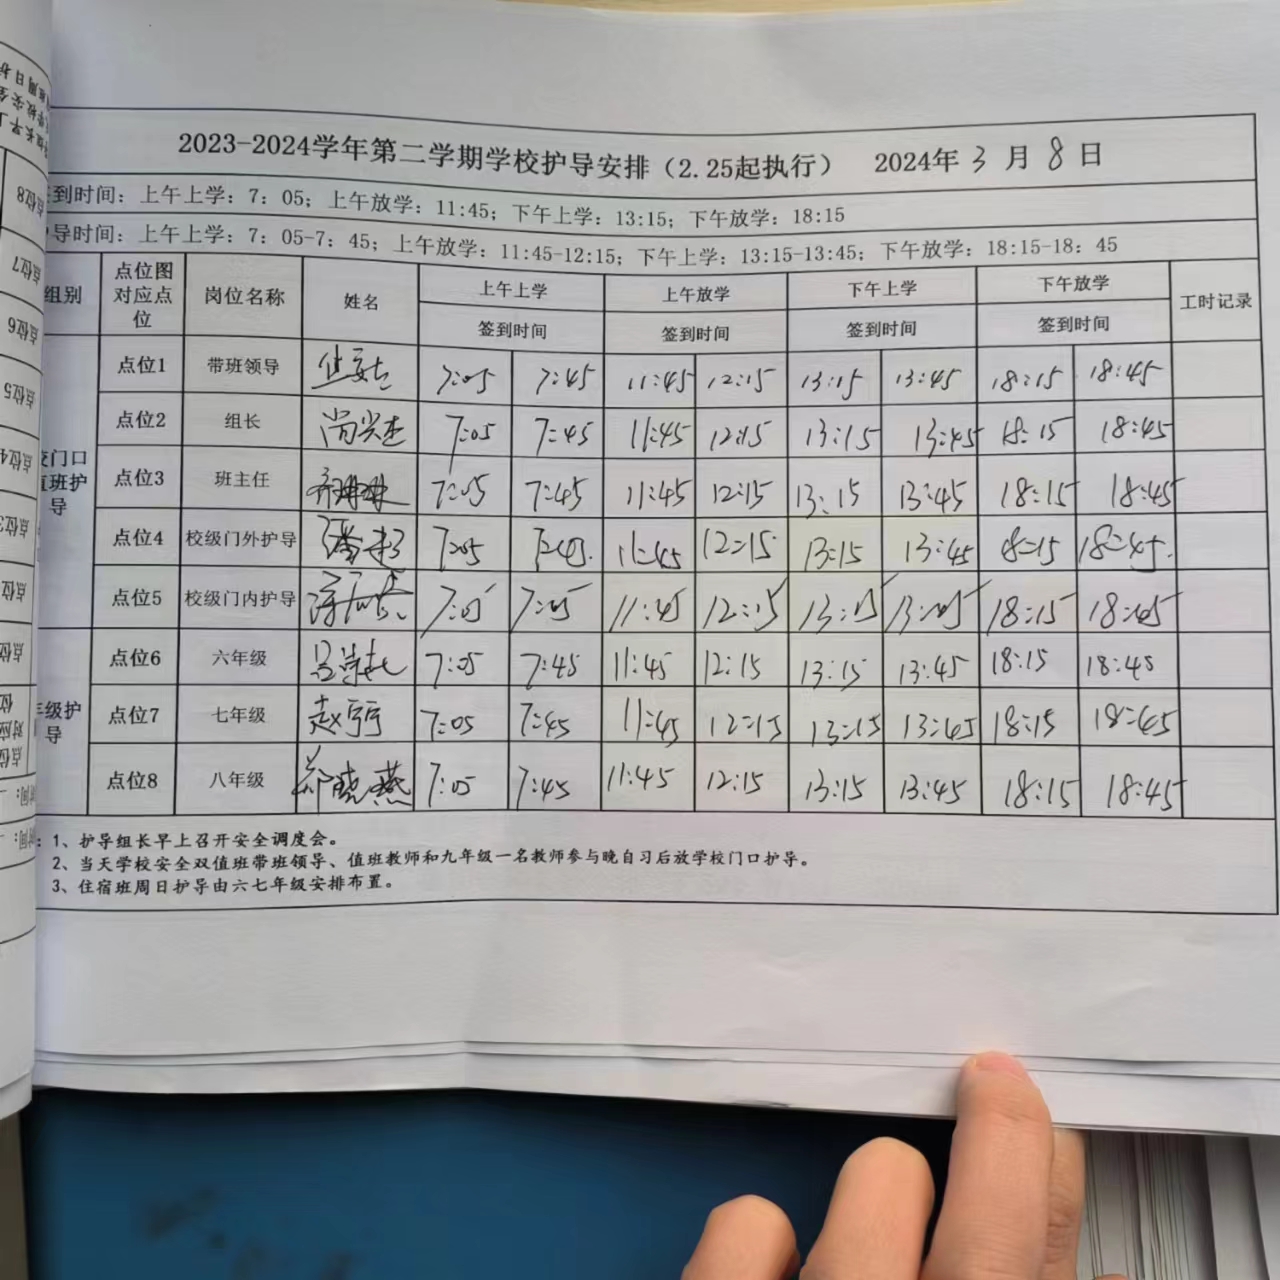 2023-2024学年第二学期学校护导安排（2.25起执行） 2024年 3 月 8 日
到时间：上午上学：7：05；上午放学：11:45；下午上学：13:15；下午放学：18:15
导时间：上午上学：7：05-7：45；上午放学：11:45-12:15；下午上学：13:15-13:45；下午放学：18:15-18：45
组别 点位图对应点位 岗位名称 姓名 上午上学 上午放学 下午上学 下午放学 工时记录
签到时间 签到时间 签到时间 签到时间
门口班护导
点位1 带班领导 7:05 7:45 11:45 12:15 13:15 13:45 18:15 18:45
点位2 组长 尚兴杰 7:05 7:45 11:45 12:15 13:15 13:45 18:15 18:45
点位3 班主任 7:05 7:45 11:45 12:15 13:15 13:45 18:15 18:45
点位4 校级门外护导 7:05 7:45 11:45 12:15 13:15 13:45 18:15 18:45
点位5 校级门内护导 7:05 7:45 11:45 12:15 13:15 13:45 18:15 18:45
级护导
点位6 六年级 7:05 7:45 11:45 12:15 13:15 13:45 18:15 18:45
点位7 七年级 赵宁宁 7:05 7:45 11:45 12:15 13:15 13:45 18:15 18:45
点位8 八年级 郑晓燕 7:05 7:45 11:45 12:15 13:15 13:45 18:15 18:45
：1、护导组长早上召开安全调度会。
2、当天学校安全双值班带班领导、值班教师和九年级一名教师参与晚自习后放学校门口护导。
3、住宿班周日护导由六七年级安排布置。
点位8
点位7
点位6
点位5